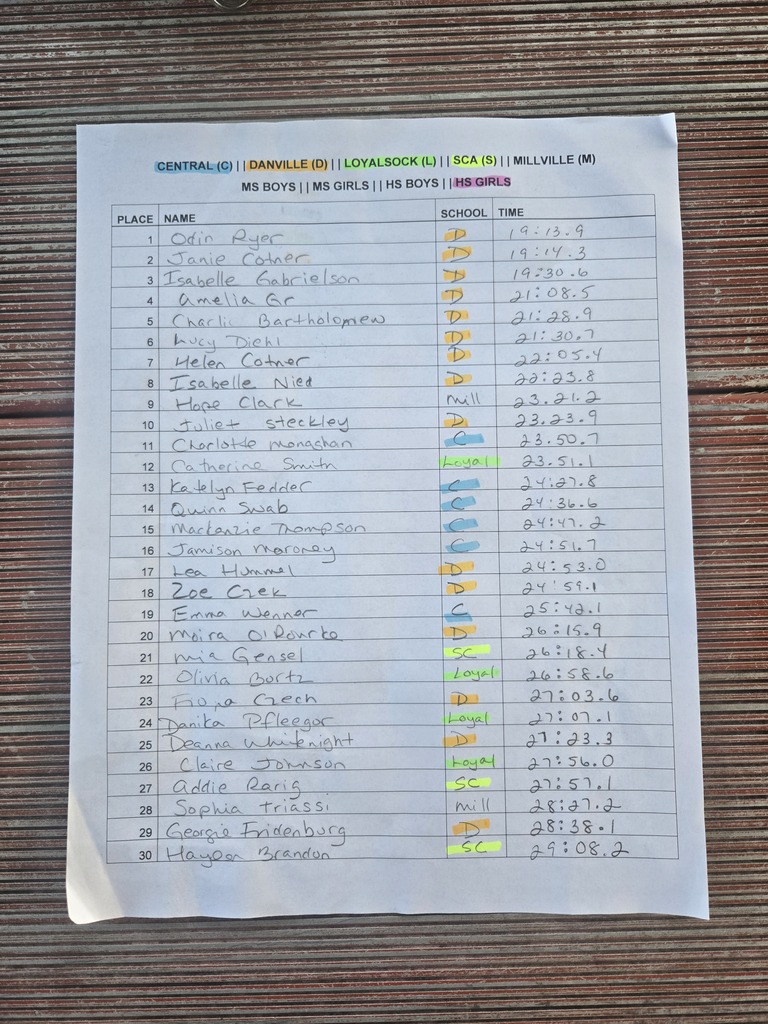 CENTRAL (C) || DANVILLE (D) || LOYALSOCK (L) || SCA (S) || MILLVILLE (M)
MS BOYS || MS GIRLS || HS BOYS || HS GIRLS
PLACE NAME SCHOOL TIME
1 Odin Ryer D 19:13.9
2 Janie Cotner D 19:14.3
3 Isabelle Gabrielson D 19:30.6
4 Amelia Gr D 21:08.5
5 Charlie Bartholomew D 21:28.9
6 Lucy Diehl D 21:30.7
7 Helen Cotner D 22:05.4
8 Isabelle Nied D 22:23.8
9 Hope Clark Mill 23.21.2
10 Juliet Steckley D 23.23.9
11 Charlotte Monaghan C 23.50.7
12 Catherine Smith Loyal 23.51.1
13 Katelyn Fedder C 24:27.8
14 Quinn Swab C 24:36.6
15 Mackenzie Thompson C 24:47.2
16 Jamison Moroney C 24:51.7
17 Lea Hummel D 24:53.0
18 Zoe Czek D 24:59.1
19 Emma Wenner C 25:42.1
20 Moira O'Rourke D 26:15.9
21 Mia Gensel SC 26:18.4
22 Olivia Bortz Loyal 26:58.6
23 Fiona Czech D 27:03.6
24 Danika Pfleegor Loyal 27:07.1
25 Deanna Whiteknight D 27:23.3
26 Claire Johnson Loyal 27:56.0
27 Addie Rarig SC 27:57.1
28 Sophia Triassi Mill 28:27.2
29 Georgie Fridenburg D 28:38.1
30 Brandon SC 29:08.2